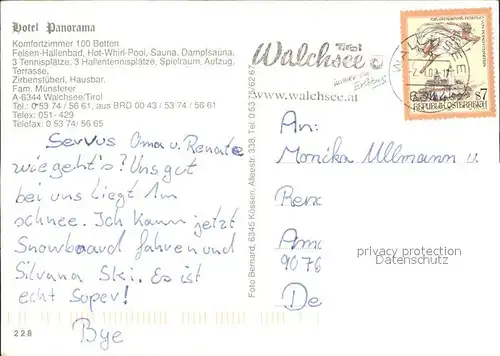 Hotel Panorama
Komfortzimmer 100 Betten
Felsen-Hallenbad, Hot-Whirl-Pool, Sauna, Dampfsauna,
3 Tennisplätze, 3 Hallentennisplätze, Spielraum, Aufzug,
Terrasse,
Zirbenstüberl, Hausbar.
Fam. Münsterer
A-6344 Walchsee/Tirol
Tel.: 0 53 74 / 56 61, aus BRD 00 43 / 53 74 / 56 61
Telex: 051-429
Telefax: 0 53 74/5 65
Servus Oma u. Renate
wie geht's? Uns gut
bei uns liegt 1m
schnee. Ich kann jetzt
Snowboard fahren und
Silvana Ski. Es ist
echt Super!
Bye
228
Foto Bernard, 6345 Kössen, Alleestr. 338 Tel 0 53 75/62 67
Tirol
Walchsee
www.walchsee.at
WALCHSEE
REPUBLIK ÖSTERREICH
S7
An:
Monika Ullmann u.
9076
De
privacy protection
Datenschutz